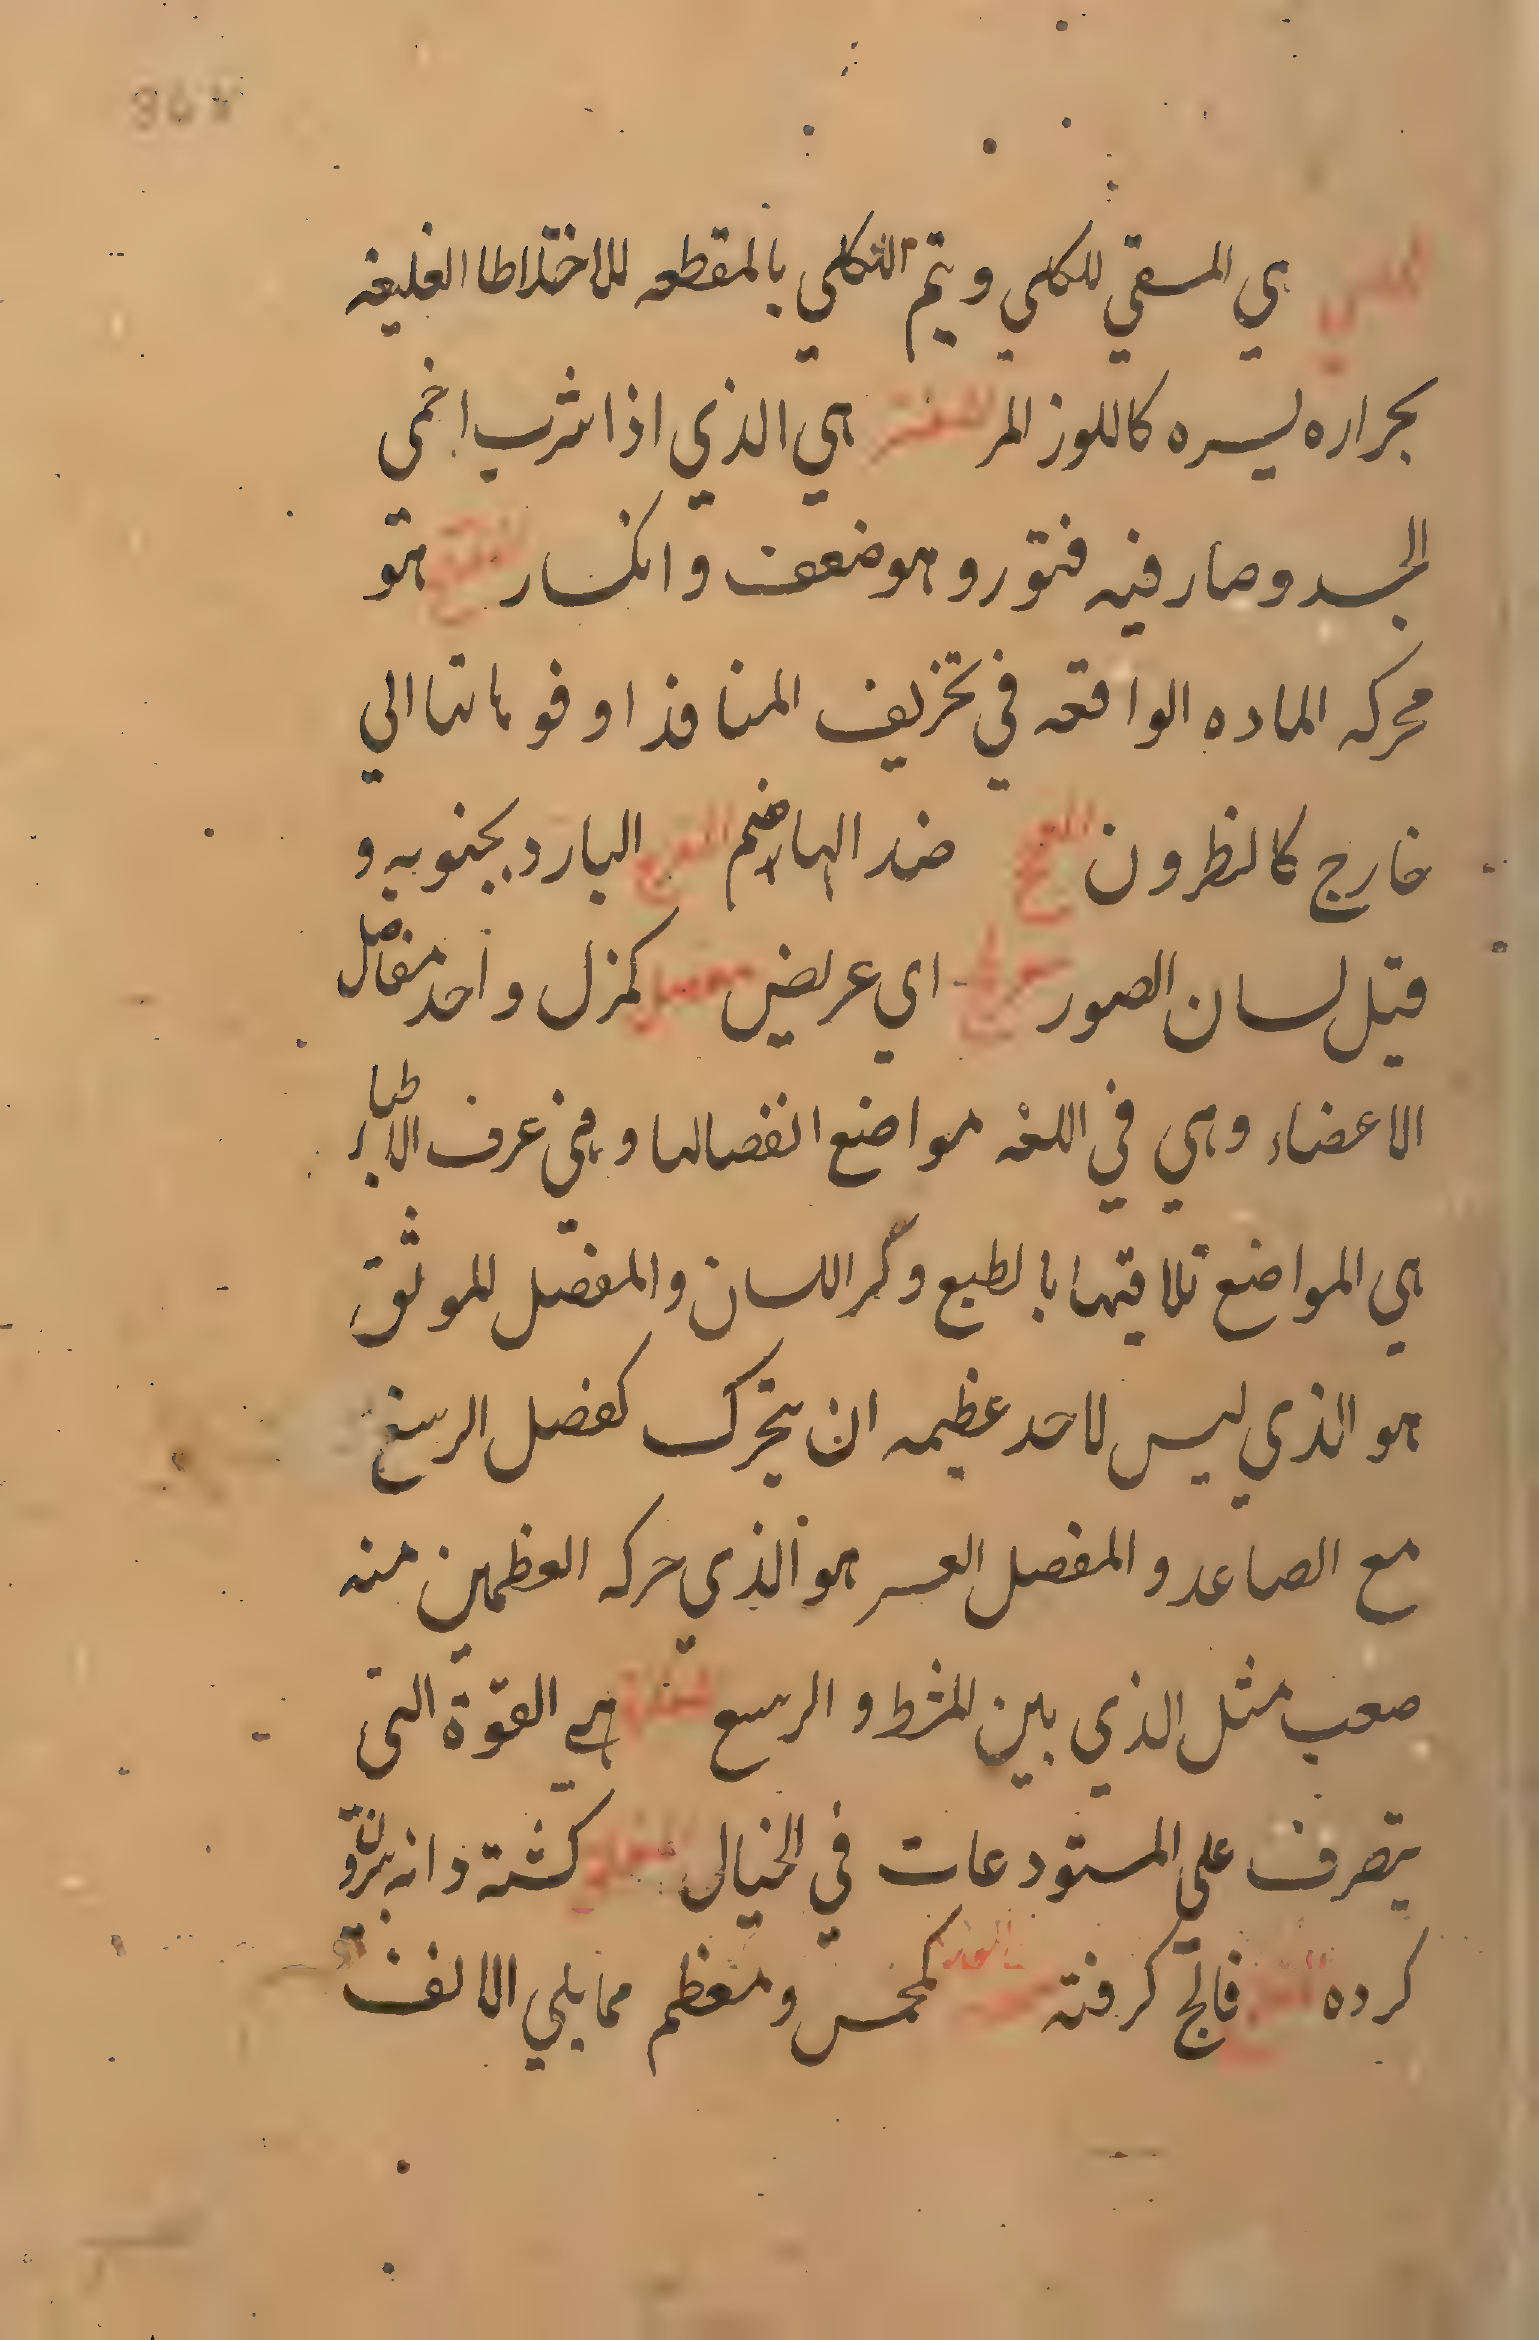 هي المسقي للكلي ويتم التكلي بالمقطعه للاختلاطا الغليغه
بحراره ليسره كاللوز المر المفتر هي الذي اذا شرب احمى
الجسد وصار فيه فتور وهو ضعف وانكسار المفتح هو
محركه الماده الواقعه في تخزيف المنافذ او فوهاتها الي
خارج كالنظرون المفجج ضد الهاضم البارد بجنوبه و
قيل لسان الصور اي عريض مفصل كمنزل واحد مفاصل
الاعضاء وهي في اللغه مواضع انفصالها وفي عرف الاطباء
هي المواضع تلاقيها بالطبع وكر اللسان والمفصل الموثق
هو الذي ليس لاحد عظيمه ان يتحرك كفصل الرسغ
مع الصاعد والمفصل العسر هو الذي حركه العظمين منه
صعب مثل الذي بين المشط والرسع هي القوة التي
يتصرف علي المستودعات في الخيال كشته دانه بيرون
كرده فالج كرفته كمحمس ومعظم مما يلي الالف